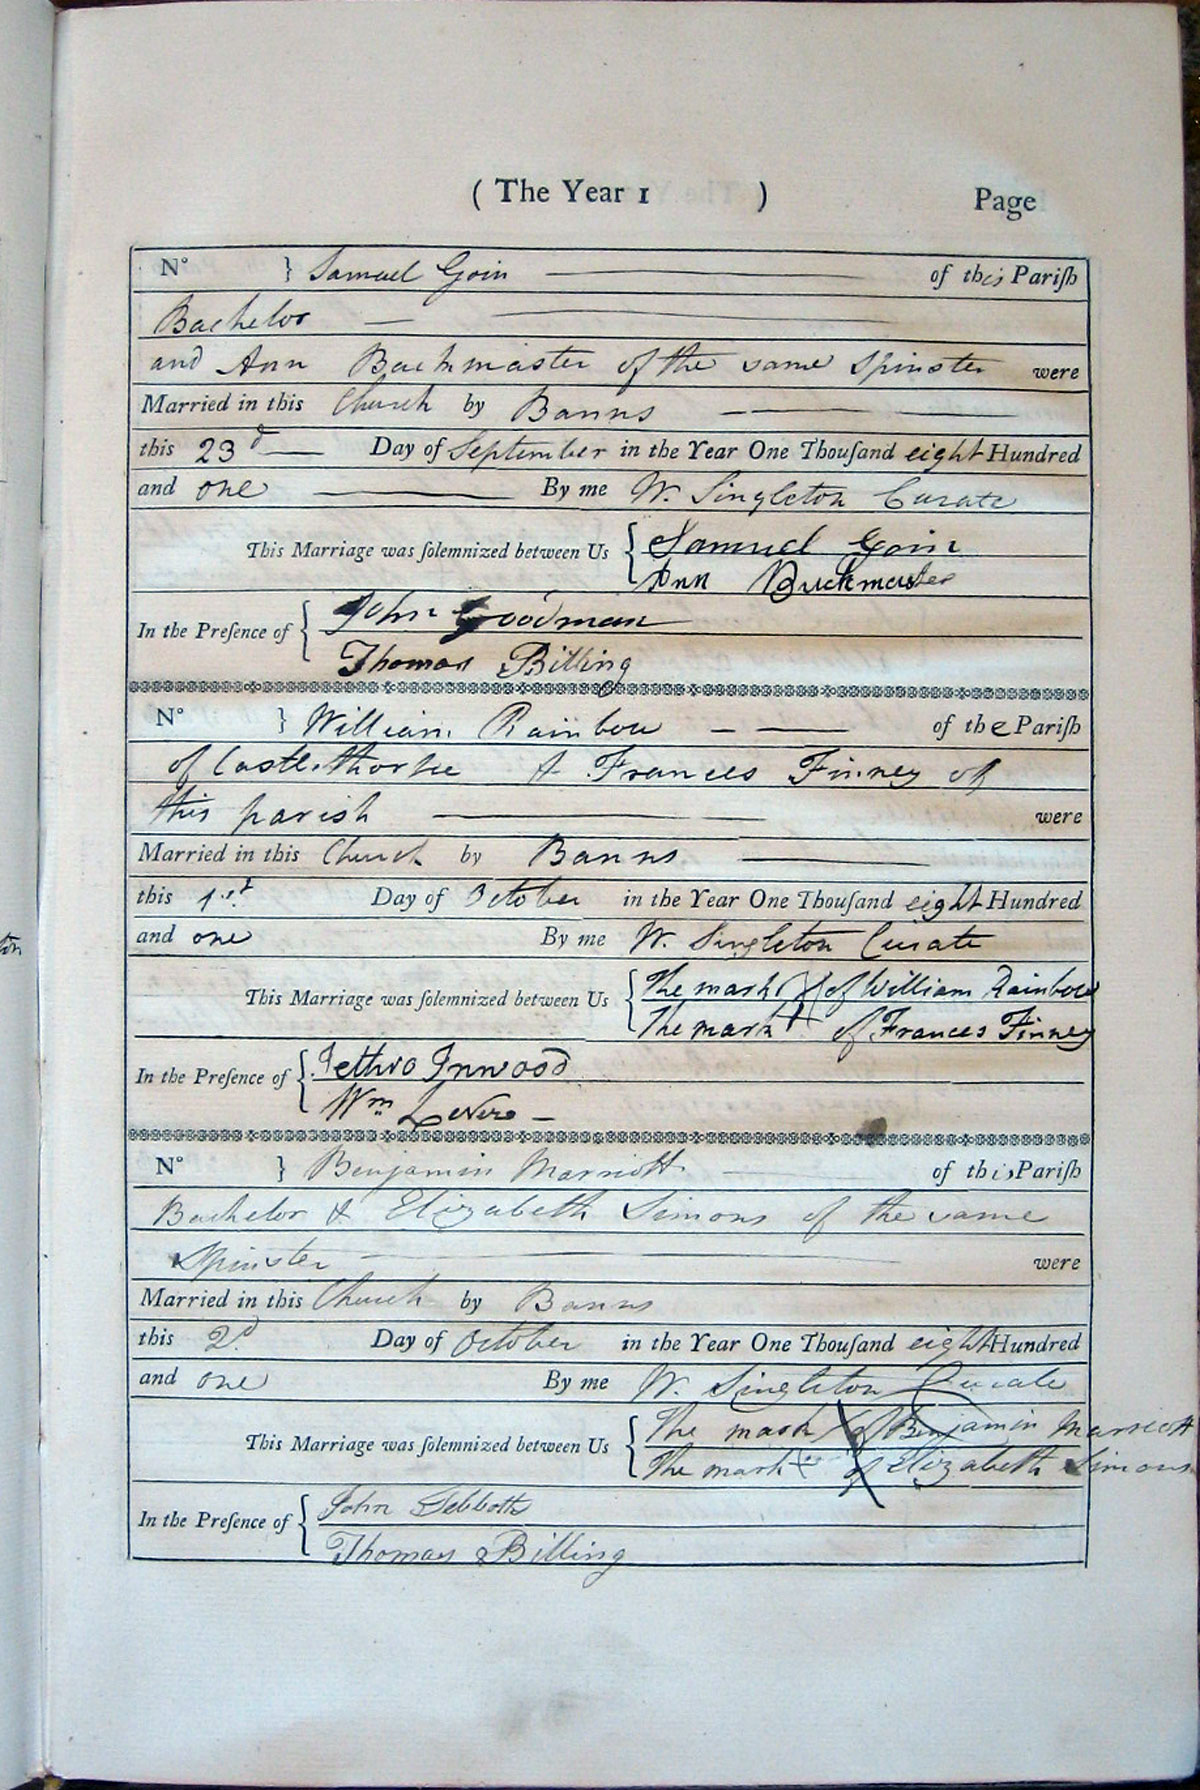 ( The Year 1 ) Page
N° } Samuel Goin of this Pariſh
Bachelor
and Ann Buckmaster of the same Spinster were
Married in this Church by Banns
this 23d Day of September in the Year One Thouſand eight Hundred
and one By me W. Singleton Curate
This Marriage was ſolemnized between Us { Samuel Goin
Ann Buckmaster
In the Preſence of { John Goodman
Thomas Billing
N° } William Rainbow of the Pariſh
of Castlethorpe & Frances Finney of
this parish were
Married in this Church by Banns
this 1st Day of October in the Year One Thouſand eight Hundred
and one By me W. Singleton Curate
This Marriage was ſolemnized between Us { The mark X of William Rainbow
The mark + of Frances Finney
In the Preſence of { Jethro Inwood
Wm
N° } Benjamin Marriott of this Pariſh
Bachelor & Elizabeth Simons of the same
Spinster were
Married in this Church by Banns
this 2d Day of October in the Year One Thouſand eight Hundred
and one By me W. Singleton Curate
This Marriage was ſolemnized between Us { The mark X of Benjamin Marriott
The mark + of Elizabeth Simons
In the Preſence of { John
Thomas Billing